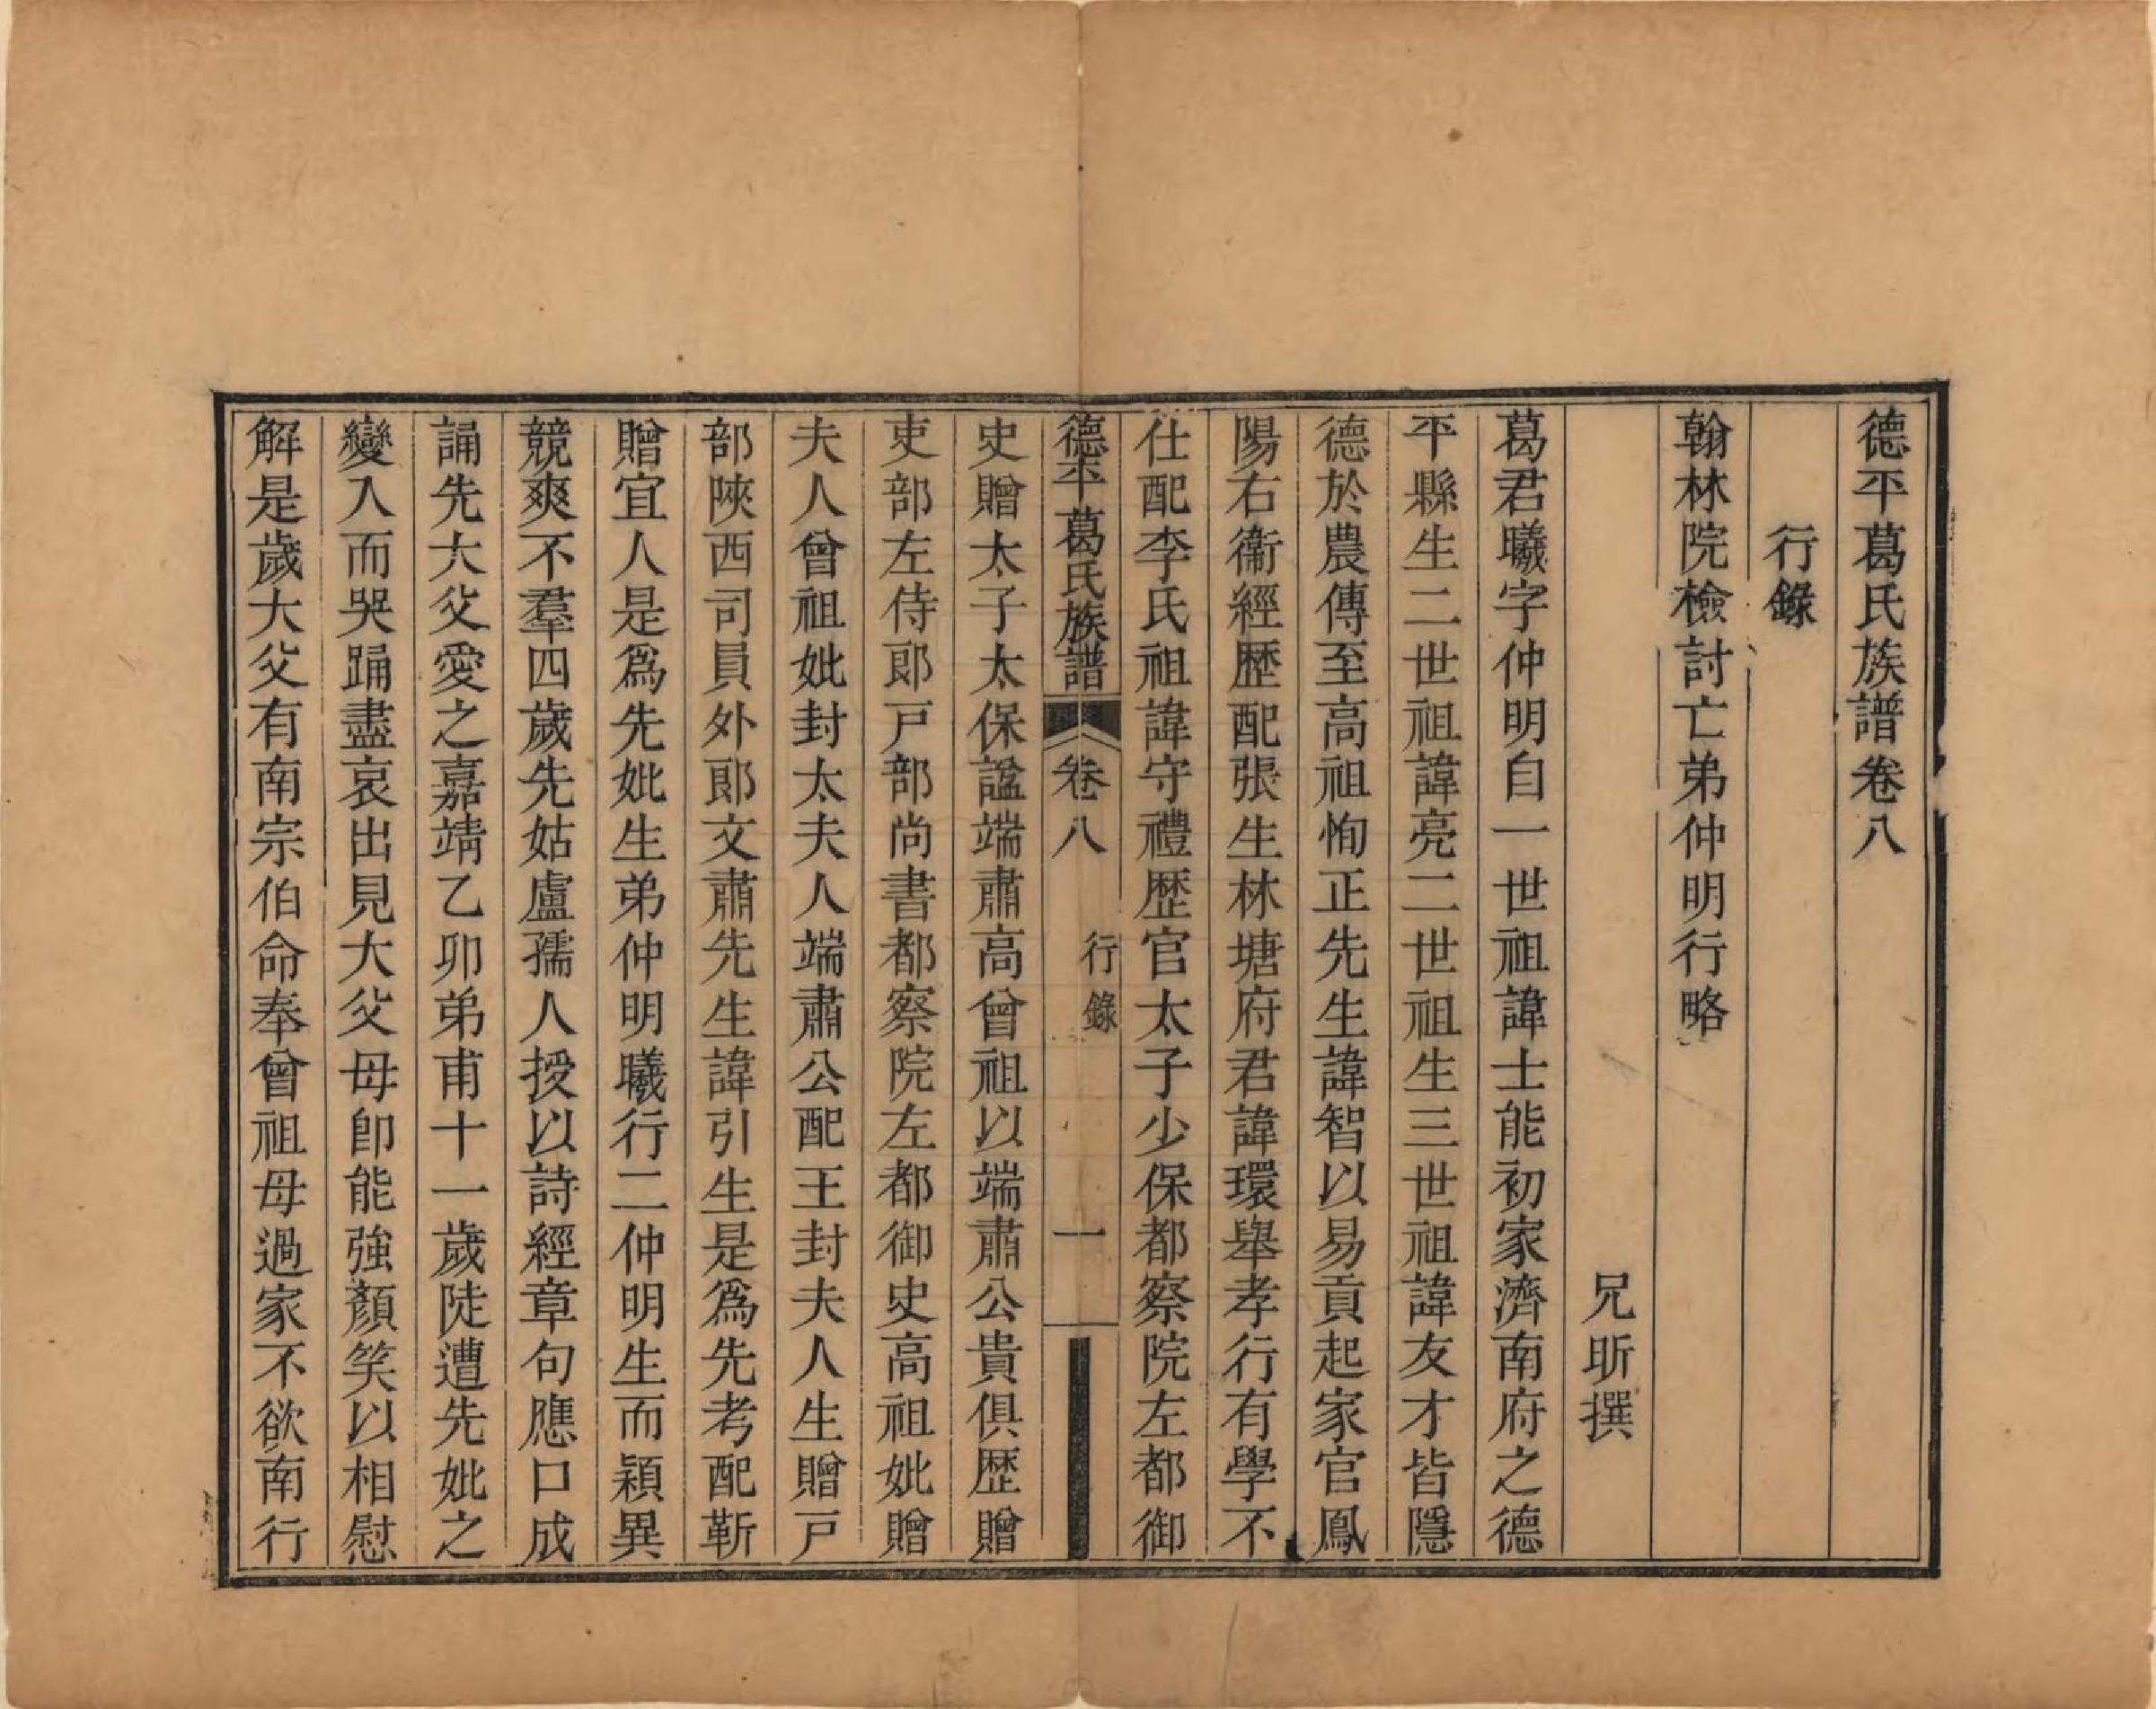 德平葛氏族譜卷八
行錄
翰林院檢討亡弟仲明行略
兄昕撰
葛君曦字仲明自一世祖諱士能初家濟南府之德
平縣生二世祖諱亮二世祖生三世祖諱友才皆隱
德於農傳至高祖恂正先生諱智以易貢起家官鳳
陽右衞經歷配張生林塘府君諱環舉孝行有學不
仕配李氏祖諱守禮歷官太子少保都察院左都御
德平葛氏族譜 卷八 行錄 一
史贈太子太保諡端肅高曾祖以端肅公貴俱歷贈
吏部左侍郎戸部尚書都察院左都御史高祖妣贈
夫人曾祖妣封太夫人端肅公配王封夫人生贈戸
部陝西司員外郎文肅先生諱引生是爲先考配靳
贈宜人是爲先妣生弟仲明曦行二仲明生而穎異
競爽不羣四歲先姑盧孺人授以詩經章句應口成
誦先大父愛之嘉靖乙卯弟甫十一歲陡遭先妣之
變入而哭踊盡哀出見大父母卽能強顏笑以相慰
解是歲大父有南宗伯命奉曾祖母過家不欲南行